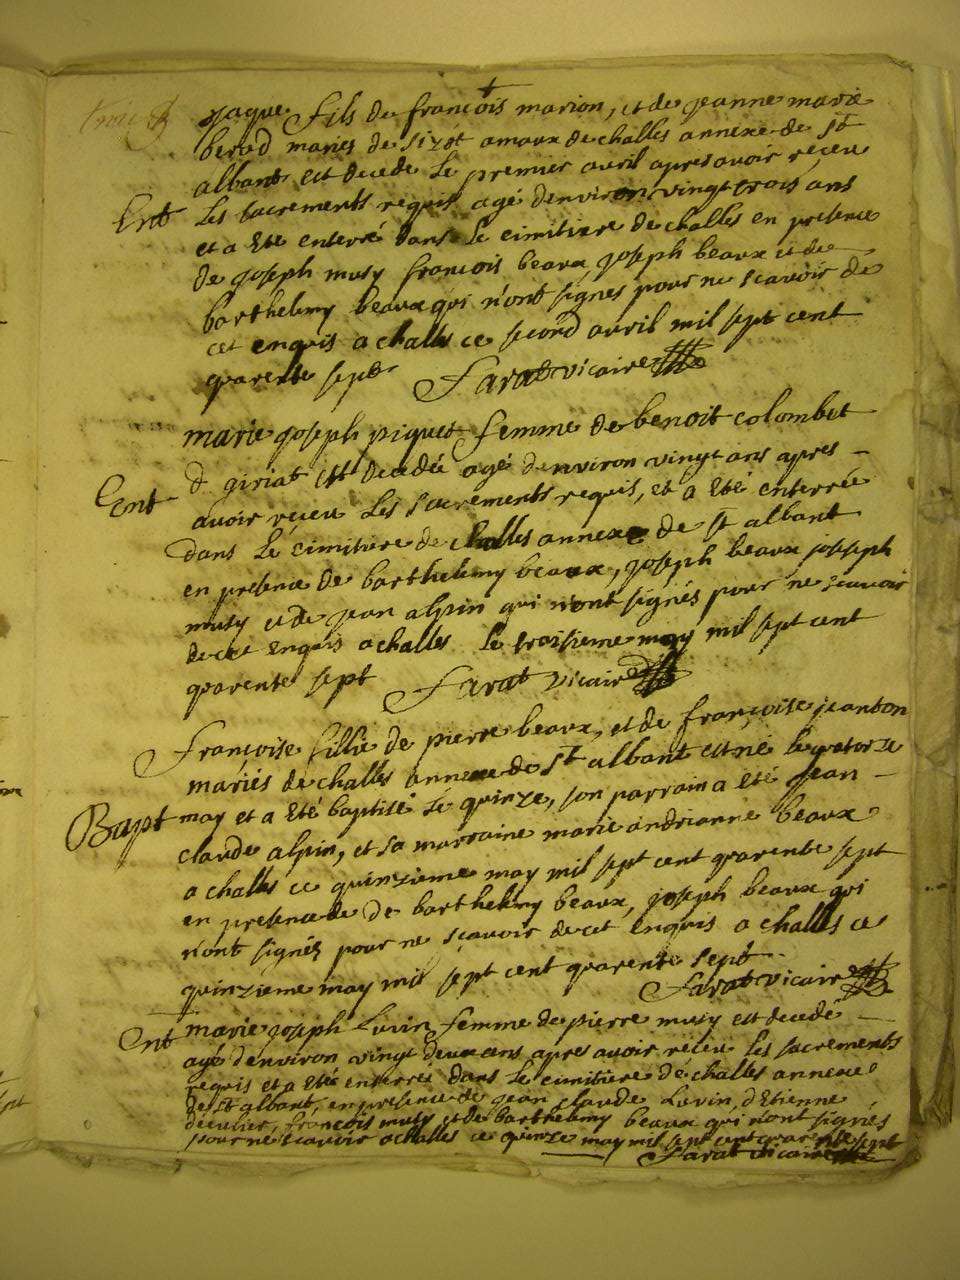 jaque fils de françois marion, et de jeanne marie
berod mariés de amoux de challes annexe de st
albant est decede le premier avril apres avoir reçeu
Ent les sacrements requis agé denviron vingt trois ans
et a eté enterré dans le cimitiere de challes en presence
de joseph musy françois beaux joseph beaux et de
barthelemy beaux qui n'ont signes pour ne scavoir de
cet enquis a challes ce second avril mil sept cent
quarente sept Farat vicaire
marie joseph piquet femme de benoit colombet
d giriat est decedée agé denviron vingt ans apres
Ent avoir reçeu les sacrements requis, et a eté enterrée
dans le cimitiere de challes annexe de st albant
en presence de barthelemy beaux, joseph beaux joseph
musy et de jean alpin qui n'ont signés pour ne scavoir
de cet enquis a challes le troisieme may mil sept cent
quarente sept Farat vicaire
Françoise fillie de pierre beaux, et de françoise jeanton
mariés de challes annexe de st albant est né le quatorze
Bapt may et a eté baptisé le quinze, son parrain a eté jean
claude alpin, et sa marraine marie andrianne beaux
a challes ce quinzieme may mil sept cent quarente sept
en presence de de barthelemy beaux, joseph beaux qui
n'ont signés pour ne scavoir de cet enquis a challes ce
quinzieme may mil sept cent quarente sept
Farat vicaire
Ent marie joseph Luvin femme de pierre musy est decedé
agé denviron vingt deux ans apres avoir reçeu les sacrements
requis et a eté enterré dans le cimitiere de challes annexe
de st albant, en presence de jean claude Luvin, d'Etienne
françois musy et de barthelemy beaux qui n'ont signés
pour ne scavoir a challes ce quinze may mil sept cent quarente sept
Farat vicaire